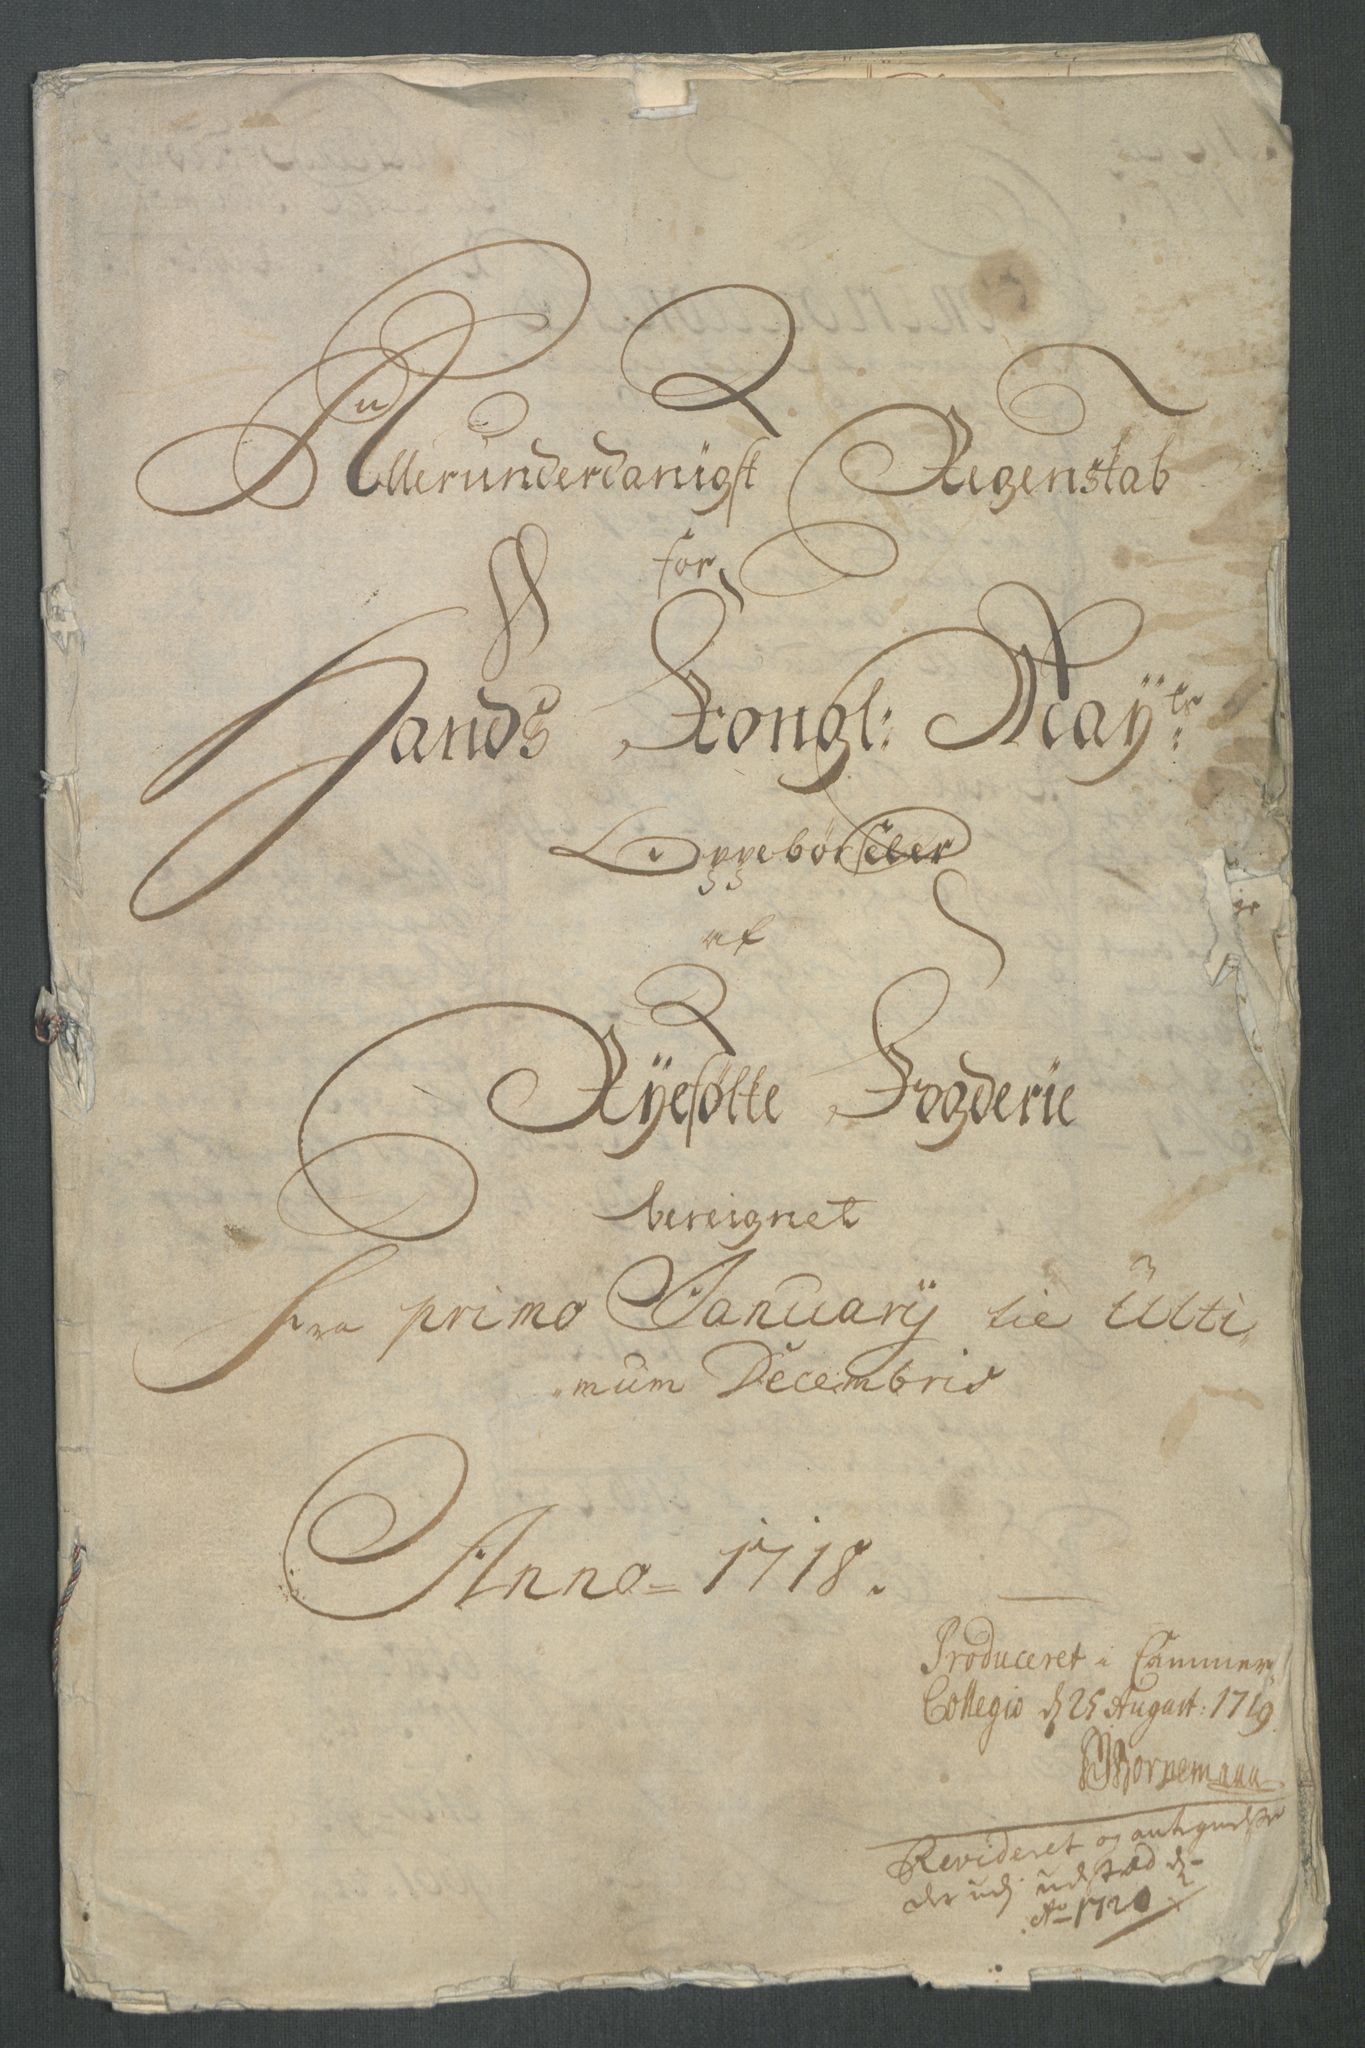 Allerunderdanigst Regenskab
for
Hands Kongl: Mayts:
Oppebørseler
af
Ryefølke Fogderie
bereignet
Fra primo Januarÿ til Ulti„
„mum Decembris
Anno= 1718.
Produceret i Cammer
Collegio d 25 August: 1719
Bornemann
Revideret og antegnelser
der udj udstæd d
Ao 1720